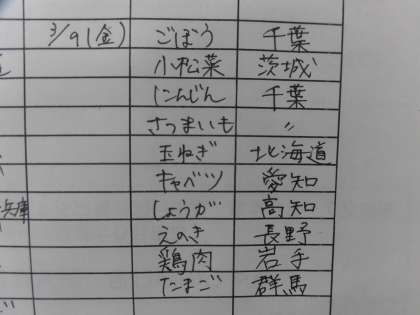 3/9(金) ごぼう 千葉
小松菜 茨城
にんじん 千葉
さつまいも 〃
玉ねぎ 北海道
キャベツ 愛知
兵庫 しょうが 高知
えのき 長野
鶏肉 岩手
たまご 群馬